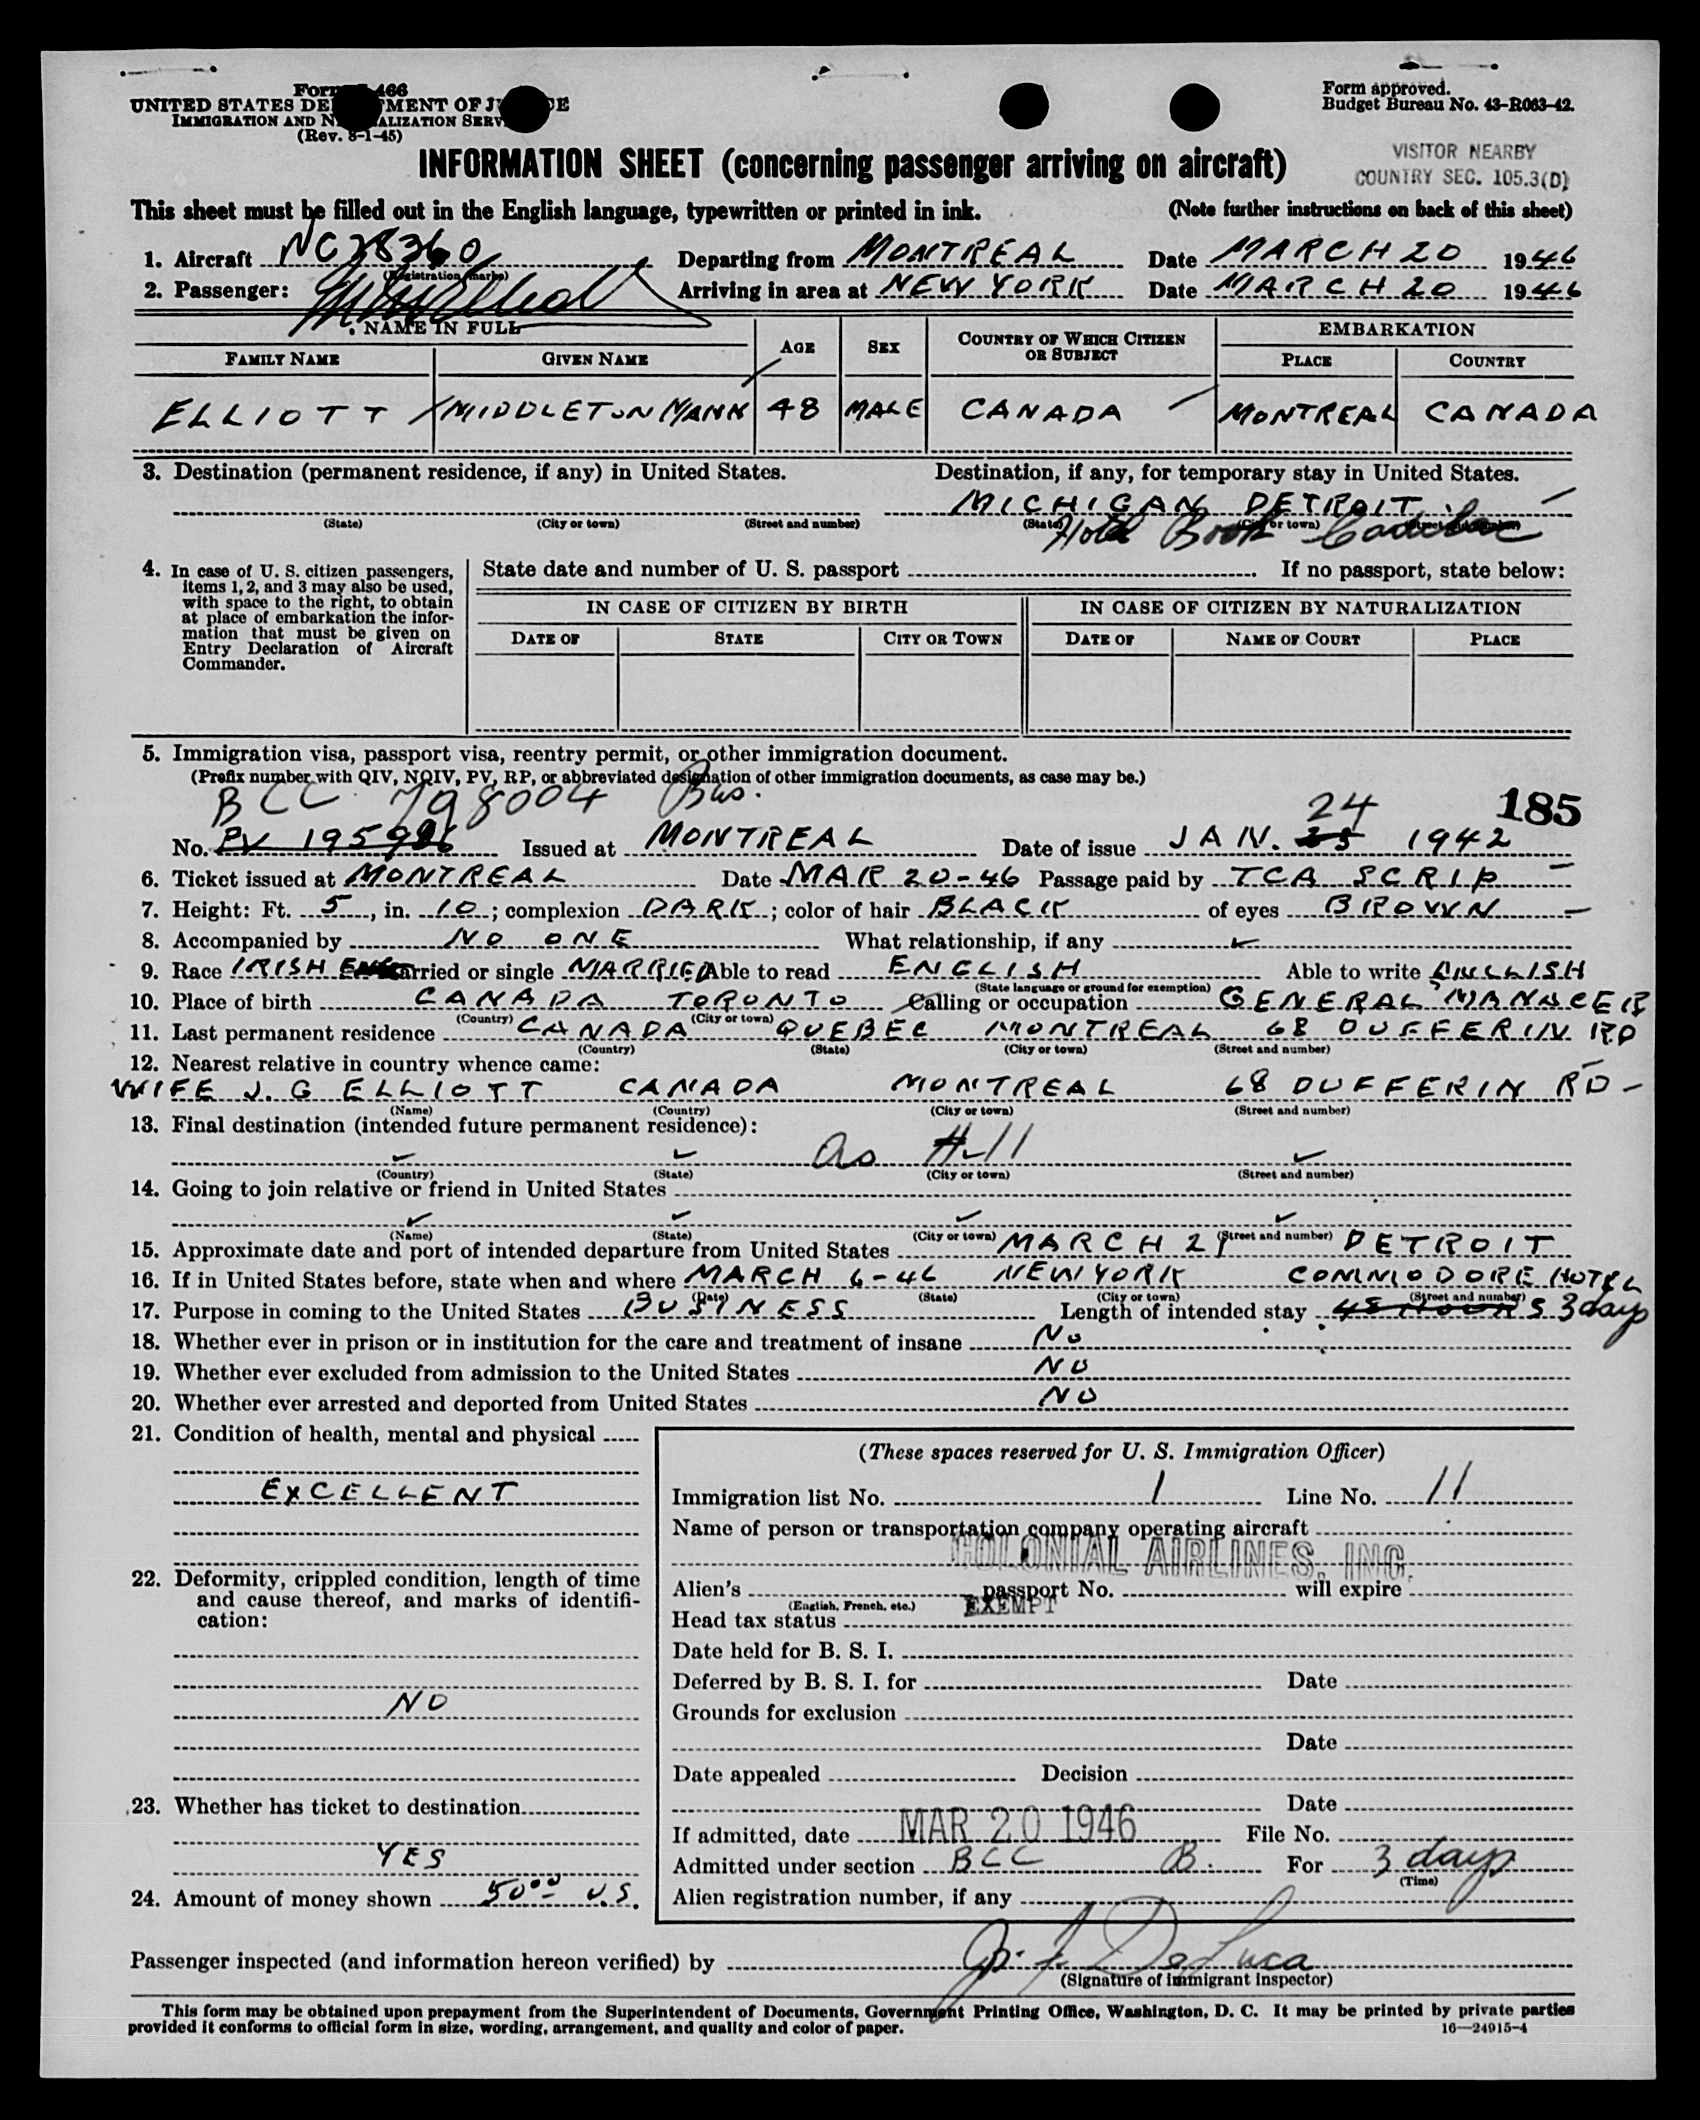 Form 466
UNITED STATES DE MENT OF J CE
IMMIGRATION AND N ALIZATION SERV
(Rev. 8-1-45)
Form approved.
Budget Bureau No. 43-R063-42.
VISITOR NEARBY
COUNTRY SEC. 105.3(D)
INFORMATION SHEET (concerning passenger arriving on aircraft)
This sheet must be filled out in the English language, typewritten or printed in ink. (Note further instructions on back of this sheet)
1. Aircraft NC28360 Departing from MONTREAL Date MARCH 20 1946
(Registration marks)
2. Passenger: Arriving in area at NEW YORK Date MARCH 20 1946
NAME IN FULL AGE SEX COUNTRY OF WHICH CITIZEN OR SUBJECT EMBARKATION
FAMILY NAME GIVEN NAME PLACE COUNTRY
ELLIOTT MIDDLETON MANN 48 MALE CANADA MONTREAL CANADA
3. Destination (permanent residence, if any) in United States. Destination, if any, for temporary stay in United States.
MICHIGAN DETROIT
(State) (City or town) (Street and number) (State) (City or town) (Street and number)
Hotel Book Cadillac
4. In case of U. S. citizen passengers, items 1, 2, and 3 may also be used, with space to the right, to obtain at place of embarkation the information that must be given on Entry Declaration of Aircraft Commander.
State date and number of U. S. passport If no passport, state below:
IN CASE OF CITIZEN BY BIRTH IN CASE OF CITIZEN BY NATURALIZATION
DATE OF STATE CITY OR TOWN DATE OF NAME OF COURT PLACE
5. Immigration visa, passport visa, reentry permit, or other immigration document.
(Prefix number with QIV, NQIV, PV, RP, or abbreviated designation of other immigration documents, as case may be.)
BCC 798004 Bus. 24 185
No. PV 195986 Issued at MONTREAL Date of issue JAN. 25 1942
6. Ticket issued at MONTREAL Date MAR 20-46 Passage paid by TCA SCRIP
7. Height: Ft. 5, in. 10; complexion DARK; color of hair BLACK of eyes BROWN
8. Accompanied by NO ONE What relationship, if any
9. Race IRISH Married or single MARRIED Able to read ENGLISH Able to write ENGLISH
(State language or ground for exemption)
10. Place of birth CANADA TORONTO Calling or occupation GENERAL MANAGER
(Country) (City or town)
11. Last permanent residence CANADA QUEBEC MONTREAL 68 DUFFERIN RD
(Country) (State) (City or town) (Street and number)
12. Nearest relative in country whence came:
WIFE J. G ELLIOTT CANADA MONTREAL 68 DUFFERIN RD
(Name) (Country) (City or town) (Street and number)
13. Final destination (intended future permanent residence):
as #11
(Country) (State) (City or town) (Street and number)
14. Going to join relative or friend in United States
(Name) (State) (City or town) (Street and number)
15. Approximate date and port of intended departure from United States MARCH 21 DETROIT
16. If in United States before, state when and where MARCH 6-46 NEW YORK COMMODORE HOTEL
(Date) (State) (City or town) (Street and number)
17. Purpose in coming to the United States BUSINESS Length of intended stay 48 HOURS 3 days
18. Whether ever in prison or in institution for the care and treatment of insane NO
19. Whether ever excluded from admission to the United States NO
20. Whether ever arrested and deported from United States NO
21. Condition of health, mental and physical
EXCELLENT
22. Deformity, crippled condition, length of time and cause thereof, and marks of identification:
NO
23. Whether has ticket to destination
YES
24. Amount of money shown 50.00 U.S.
(These spaces reserved for U. S. Immigration Officer)
Immigration list No. 1 Line No. 11
Name of person or transportation company operating aircraft
COLONIAL AIRLINES, INC.
Alien's passport No. will expire
(English, French, etc.)
Head tax status EXEMPT
Date held for B. S. I.
Deferred by B. S. I. for Date
Grounds for exclusion
Date
Date appealed Decision
Date
If admitted, date MAR 20 1946 File No.
Admitted under section BCC B. For 3 days
(Time)
Alien registration number, if any
Passenger inspected (and information hereon verified) by J. F. DeLuca
(Signature of Immigrant Inspector)
This form may be obtained upon prepayment from the Superintendent of Documents, Government Printing Office, Washington, D. C. It may be printed by private parties
provided it conforms to official form in size, wording, arrangement, and quality and color of paper. 16—24915-4